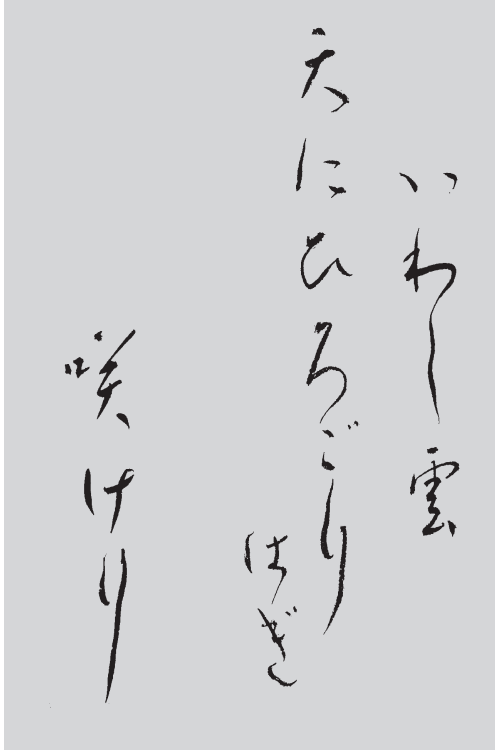 いわし雲
天にひろごり
はぎ
咲けり